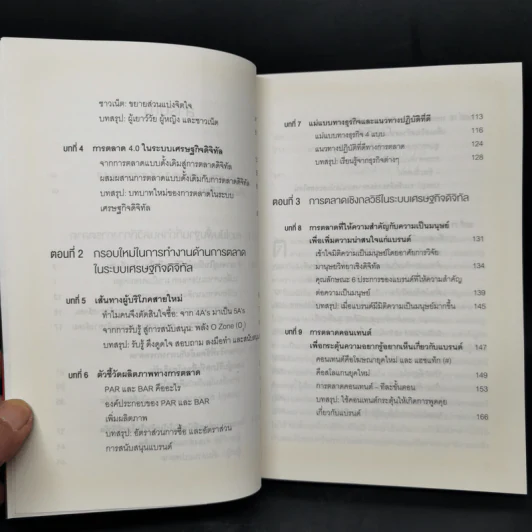 ชาวเน็ต: ขยายส่วนแบ่งจิตใจ
บทสรุป: ผู้เยาว์วัย ผู้หญิง และชาวเน็ต
บทที่ 4 การตลาด 4.0 ในระบบเศรษฐกิจดิจิทัล
จากการตลาดแบบดั้งเดิมสู่การตลาดดิจิทัล
ผสมผสานการตลาดแบบดั้งเดิมกับการตลาดดิจิทัล
บทสรุป: บทบาทใหม่ของการตลาดในระบบ
เศรษฐกิจดิจิทัล
ตอนที่ 2 กรอบใหม่ในการทำงานด้านการตลาด
ในระบบเศรษฐกิจดิจิทัล
บทที่ 5 เส้นทางผู้บริโภคสายใหม่
ทำไมคนจึงตัดสินใจซื้อ: จาก 4A's มาเป็น 5A's
จากการรับรู้ สู่การสนับสนุน: พลัง O Zone (O₃)
บทสรุป: รับรู้ ดึงดูดใจ สอบถาม ลงมือทำ และสนับสนุน
บทที่ 6 ตัวชี้วัดผลิตภาพทางการตลาด
PAR และ BAR คืออะไร
องค์ประกอบของ PAR และ BAR
เพิ่มผลิตภาพ
บทสรุป: อัตราส่วนการซื้อ และอัตราส่วน
การสนับสนุนแบรนด์
บทที่ 7 แม่แบบทางธุรกิจและแนวทางปฏิบัติที่ดี 113
แม่แบบทางธุรกิจ 4 แบบ 116
แนวทางปฏิบัติที่ดีทางการตลาด 124
บทสรุป: เรียนรู้จากธุรกิจต่างๆ 128
ตอนที่ 3 การตลาดเชิงกลวิธีในระบบเศรษฐกิจดิจิทัล
บทที่ 8 การตลาดที่ให้ความสำคัญกับความเป็นมนุษย์
เพื่อเพิ่มความน่าสนใจแก่แบรนด์ 131
เข้าใจมิติความเป็นมนุษย์โดยอาศัยการวิจัย
มานุษยวิทยาเชิงดิจิทัล 134
คุณลักษณะ 6 ประการของแบรนด์ที่ให้ความสำคัญ
ต่อความเป็นมนุษย์ 139
บทสรุป: เมื่อแบรนด์มีมิติความเป็นมนุษย์มากขึ้น 145
บทที่ 9 การตลาดคอนเทนต์
เพื่อกระตุ้นความอยากรู้อยากเห็นเกี่ยวกับแบรนด์ 147
คอนเทนต์คือโฆษณายุคใหม่ และ แฮชแท็ก (#)
คือสโลแกนยุคใหม่ 149
การตลาดคอนเทนต์ - ทีละขั้นตอน 153
บทสรุป: ใช้คอนเทนต์กระตุ้นให้เกิดการพูดคุย
เกี่ยวกับแบรนด์ 166